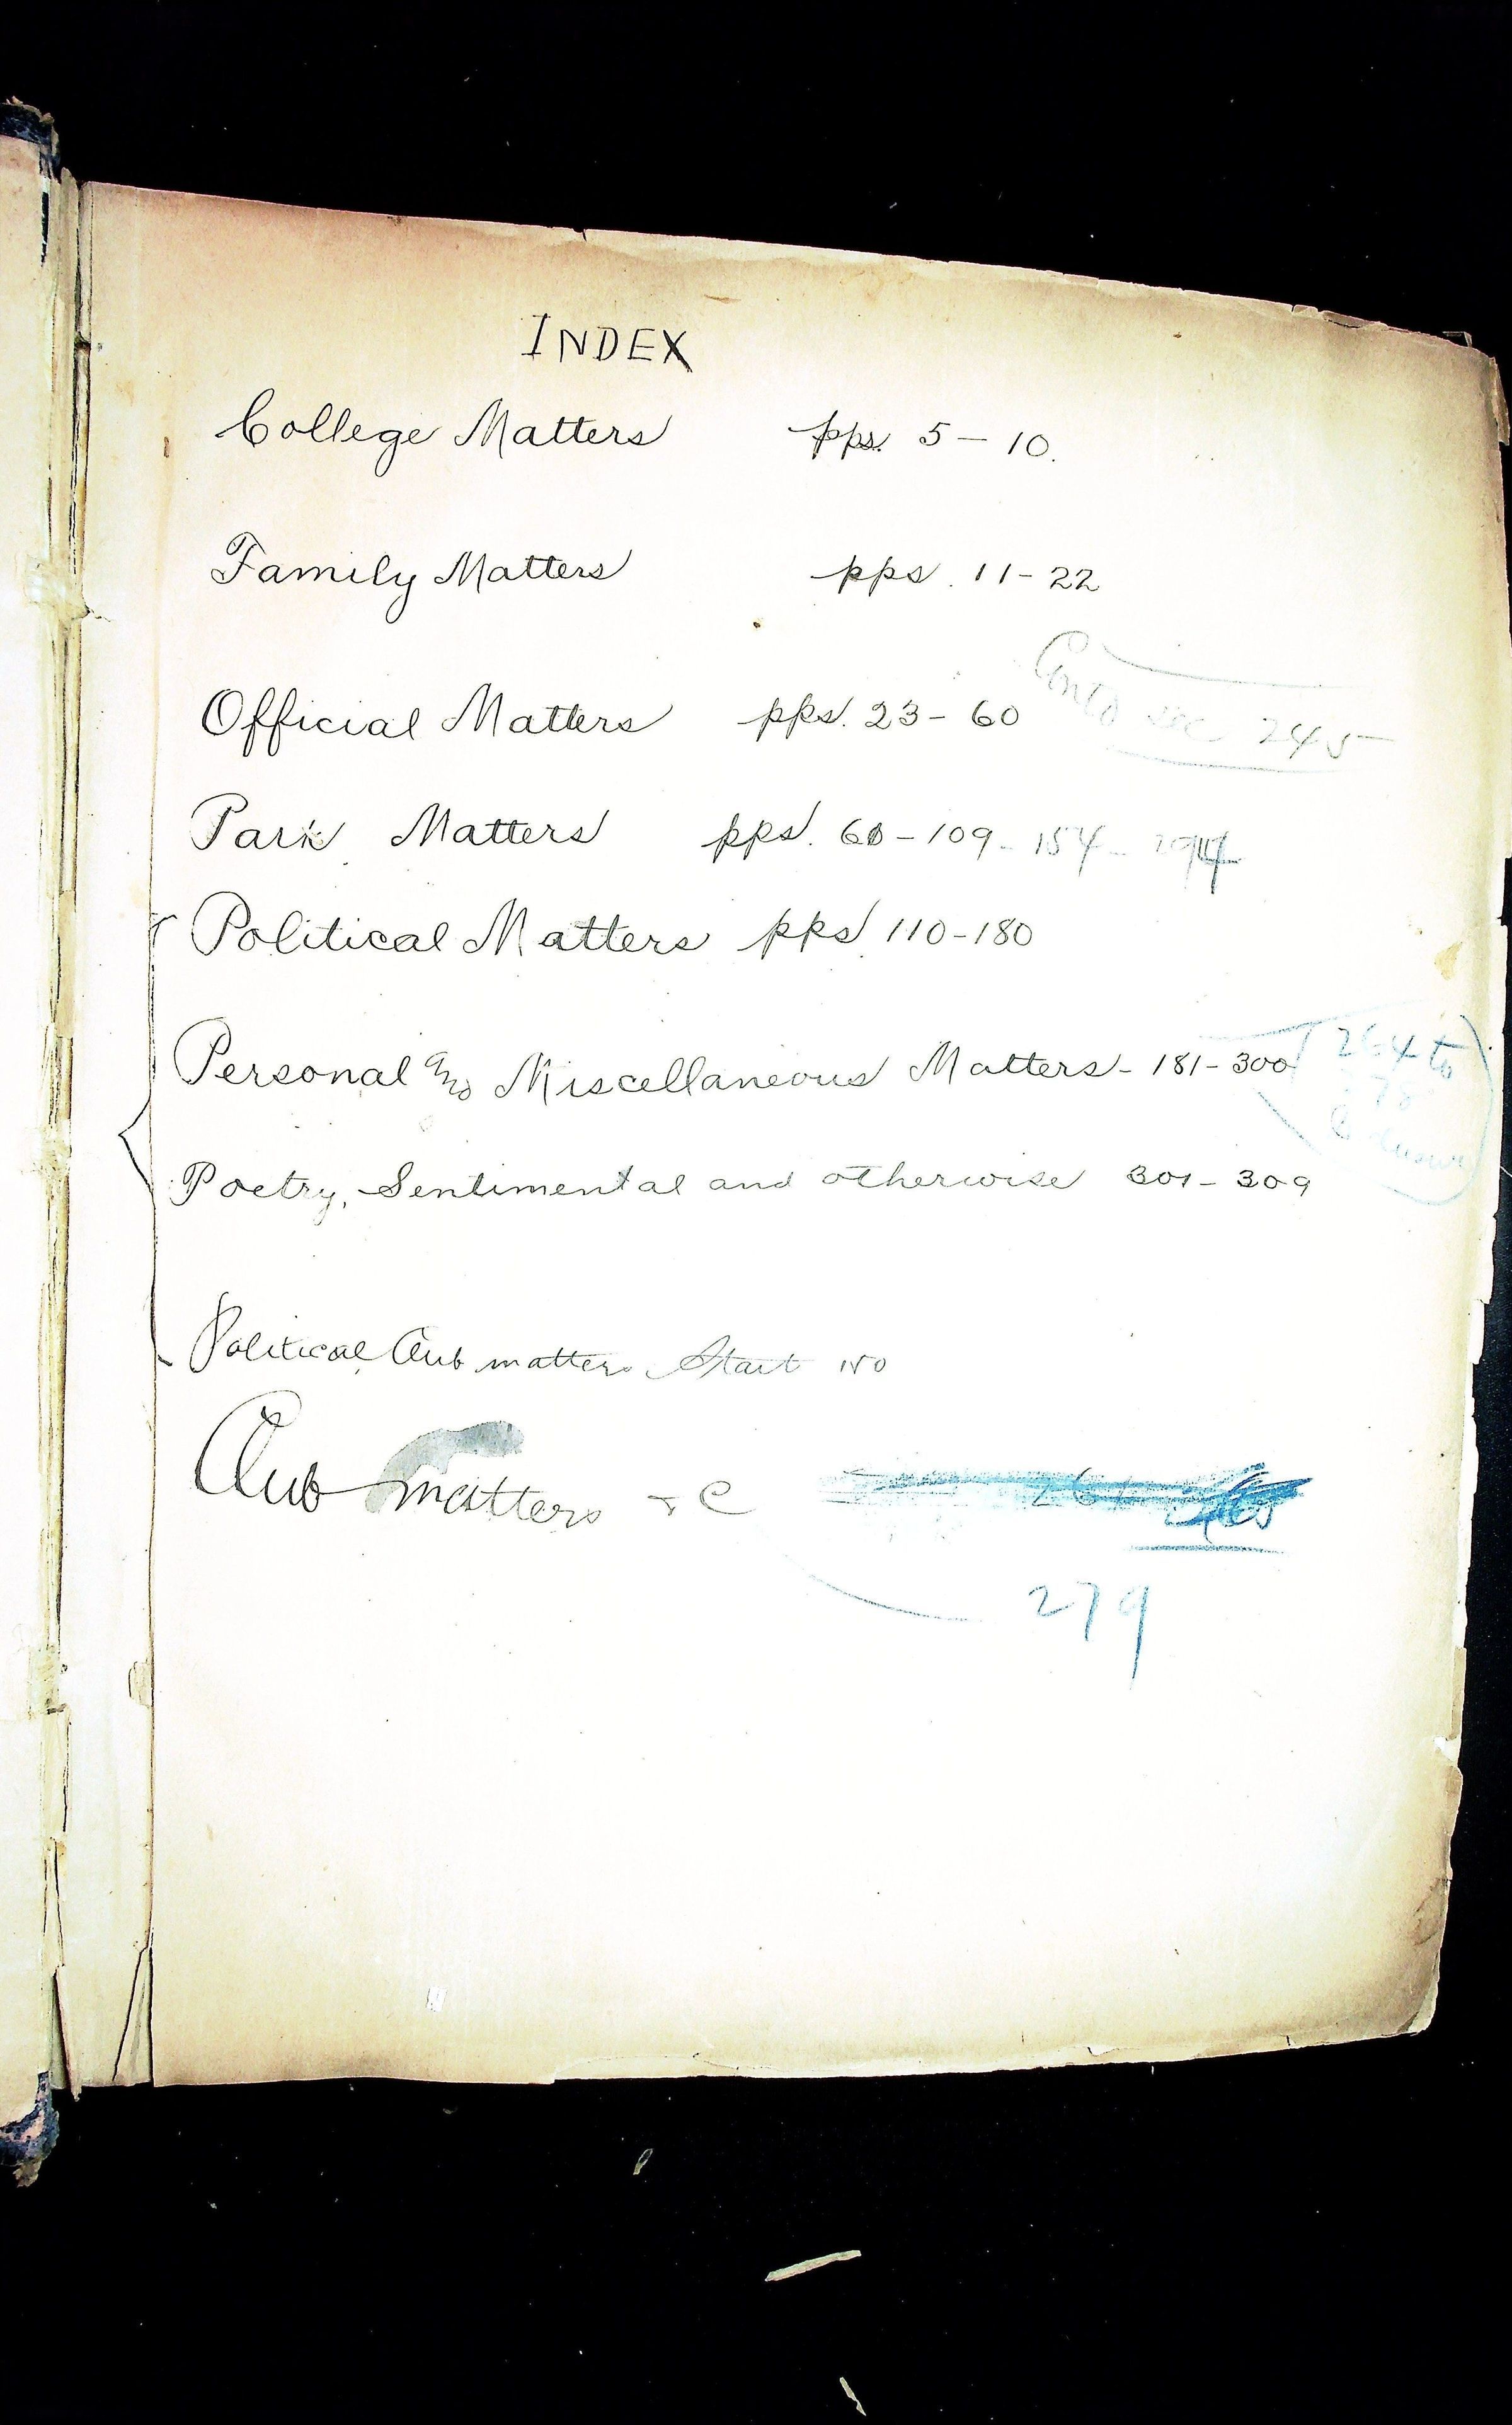 INDEX
College Matters pps. 5 – 10.
Family Matters pps. 11 – 22
Official Matters pps. 23 – 60 Contd see 245
Park Matters pps. 60 – 109 – 154 –
Political Matters pps. 110 – 180
Personal and Miscellaneous Matters – 181 – 300 264 to
Poetry, Sentimental and otherwise 301 – 309
Political Club matters Start
Club matters &c
279